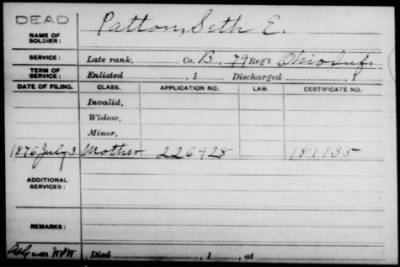 DEAD
NAME OF SOLDIER: Patton, Seth E.
SERVICE: Late rank, Co. B, 79 Reg't Ohio Inf.
TERM OF SERVICE: Enlisted , 1 Discharged , 1
DATE OF FILING. CLASS. APPLICATION NO. LAW. CERTIFICATE NO.
Invalid,
Widow,
Minor,
1876 July 3 Mother 226428 181135
ADDITIONAL SERVICES:
REMARKS:
Died , 1 , at